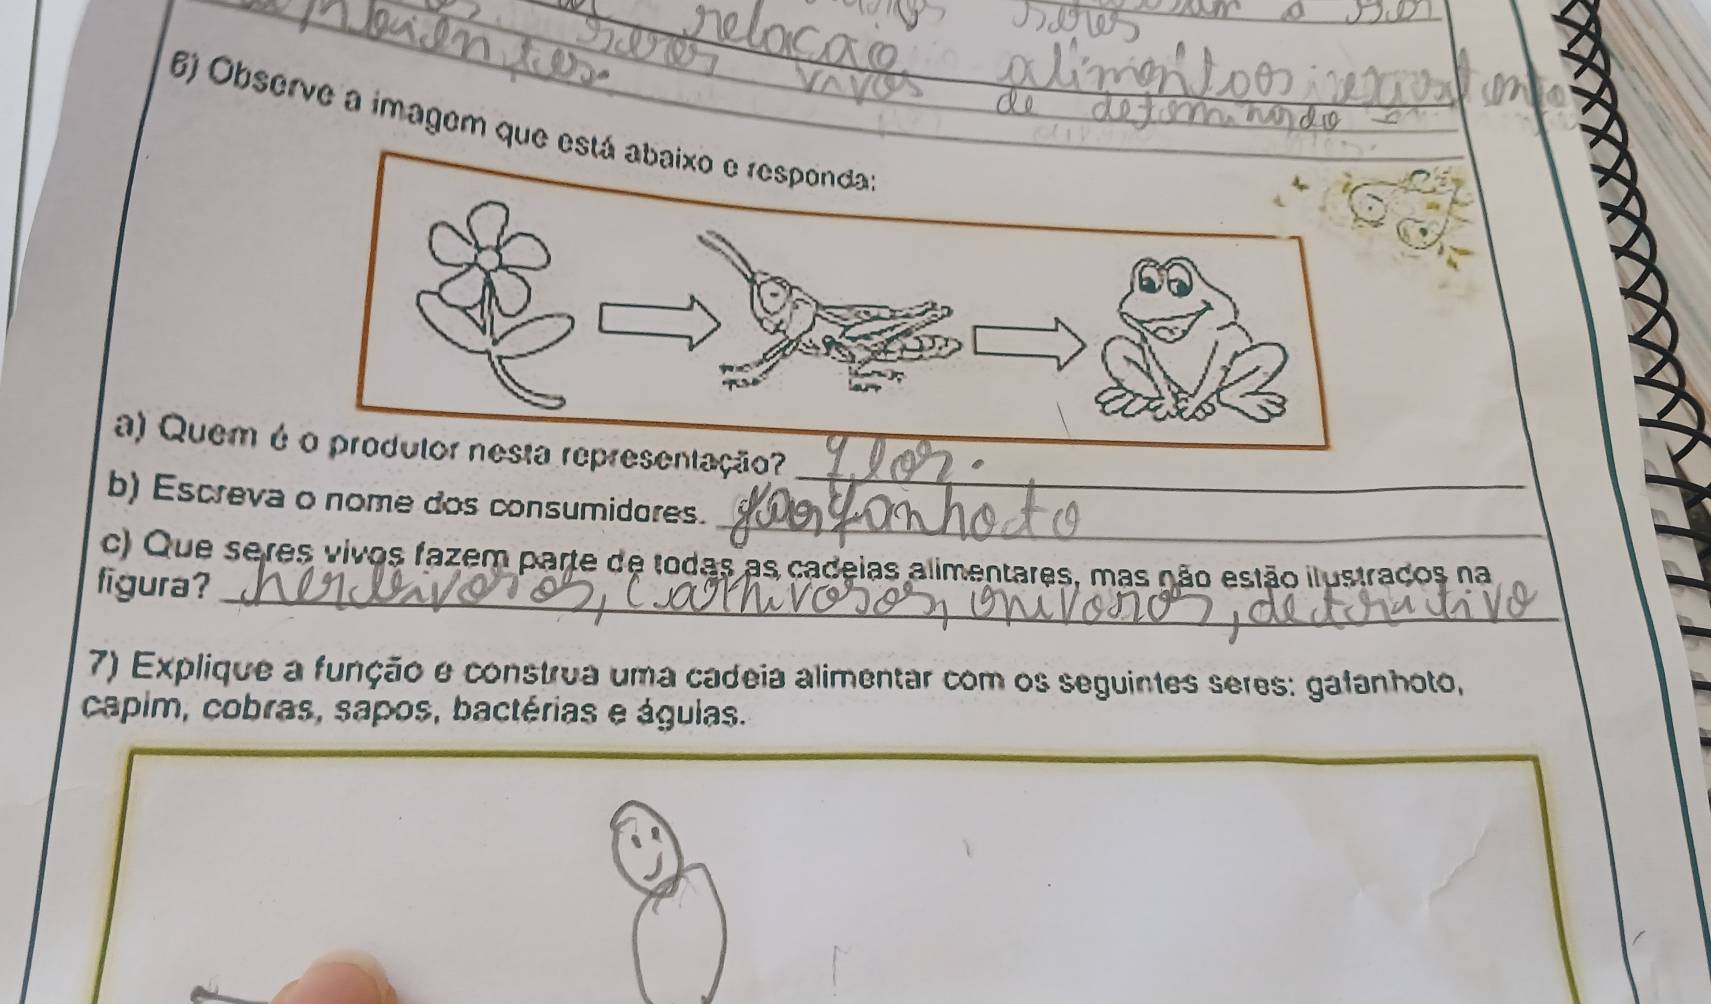 relação
alimentos
vivos
de
6) Observe a imagem que está abaixo e responda:
a) Quem é o produtor nesta representação? flor.
b) Escreva o nome dos consumidores. ganfanhoto
c) Que seres vivos fazem parte de todas as cadeias alimentares, mas não estão ilustrados na
figura? herbivoros, carnivoros, onivoros,
7) Explique a função e construa uma cadeia alimentar com os seguintes seres: gafanhoto,
capim, cobras, sapos, bactérias e águias.